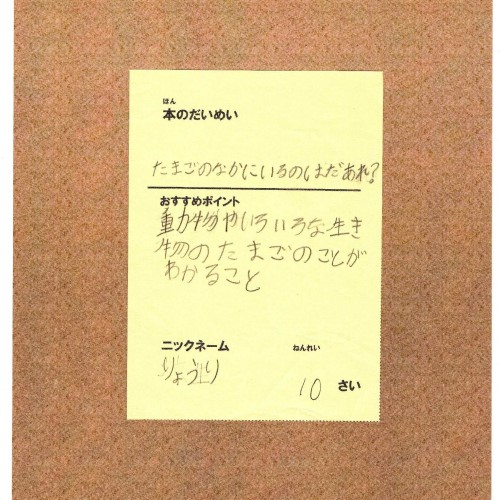 ほん
本のだいめい
たまごのなかにいるのはだあれ?
おすすめポイント
動物やいろいろな生き
物のたまごのことが
わかること
ニックネーム
ねんれい
りょうり
10 さい